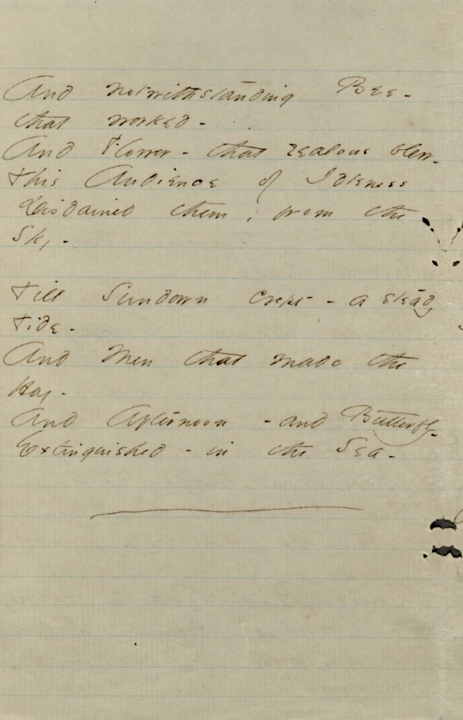 And notwithstanding Bee -
that worked -
And Flower - that zealous blew
This Audience of Idleness
Disdained them, from the
Sky -
Till Sundown crept - a steady
Tide -
And Men that made the
Hay -
And Afternoon - and Butterfly -
Extinguished - in the Sea -